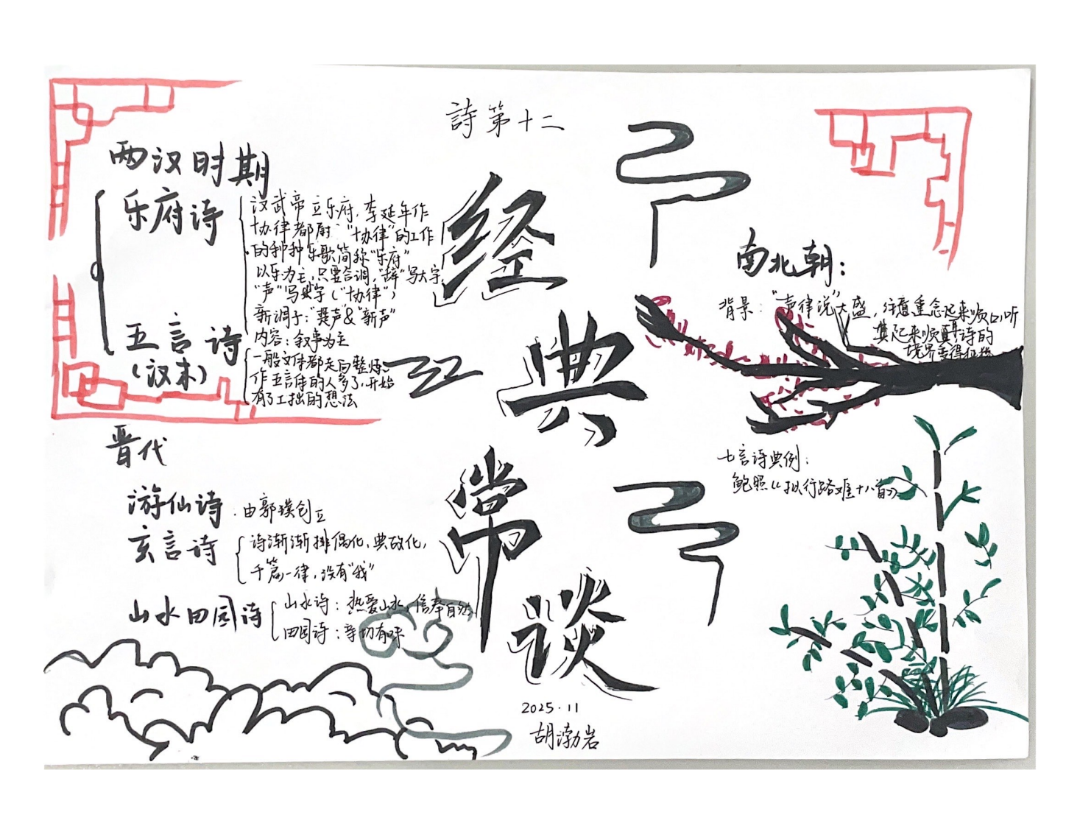 詩第十二
经典常谈
两汉时期
乐府诗
汉武帝立乐府，李延年作
协律都尉 "协律"的工作
的种种乐歌简称"乐府"
以乐为主，只要合调，"辞"写大字
"声"写字（"协律"）
新调子："楚声"&"新声"
内容：叙事为主
五言诗
（汉末）
一般文体都走向整炼
作五言诗的人多了，开始
有了工拙的想法
晋代
游仙诗
由郭璞创立
玄言诗
诗渐渐排偶化、典故化，
千篇一律，没有"我"
山水田园诗
山水诗：热爱山水，信奉自然
田园诗：亲切有味
南北朝：
背景："声律说"大盛，注意重念起来顺口，听
其起来顺耳诗的
境界
七言诗典例：
鲍照《拟行路难十八首》
2025.11
胡渤岩